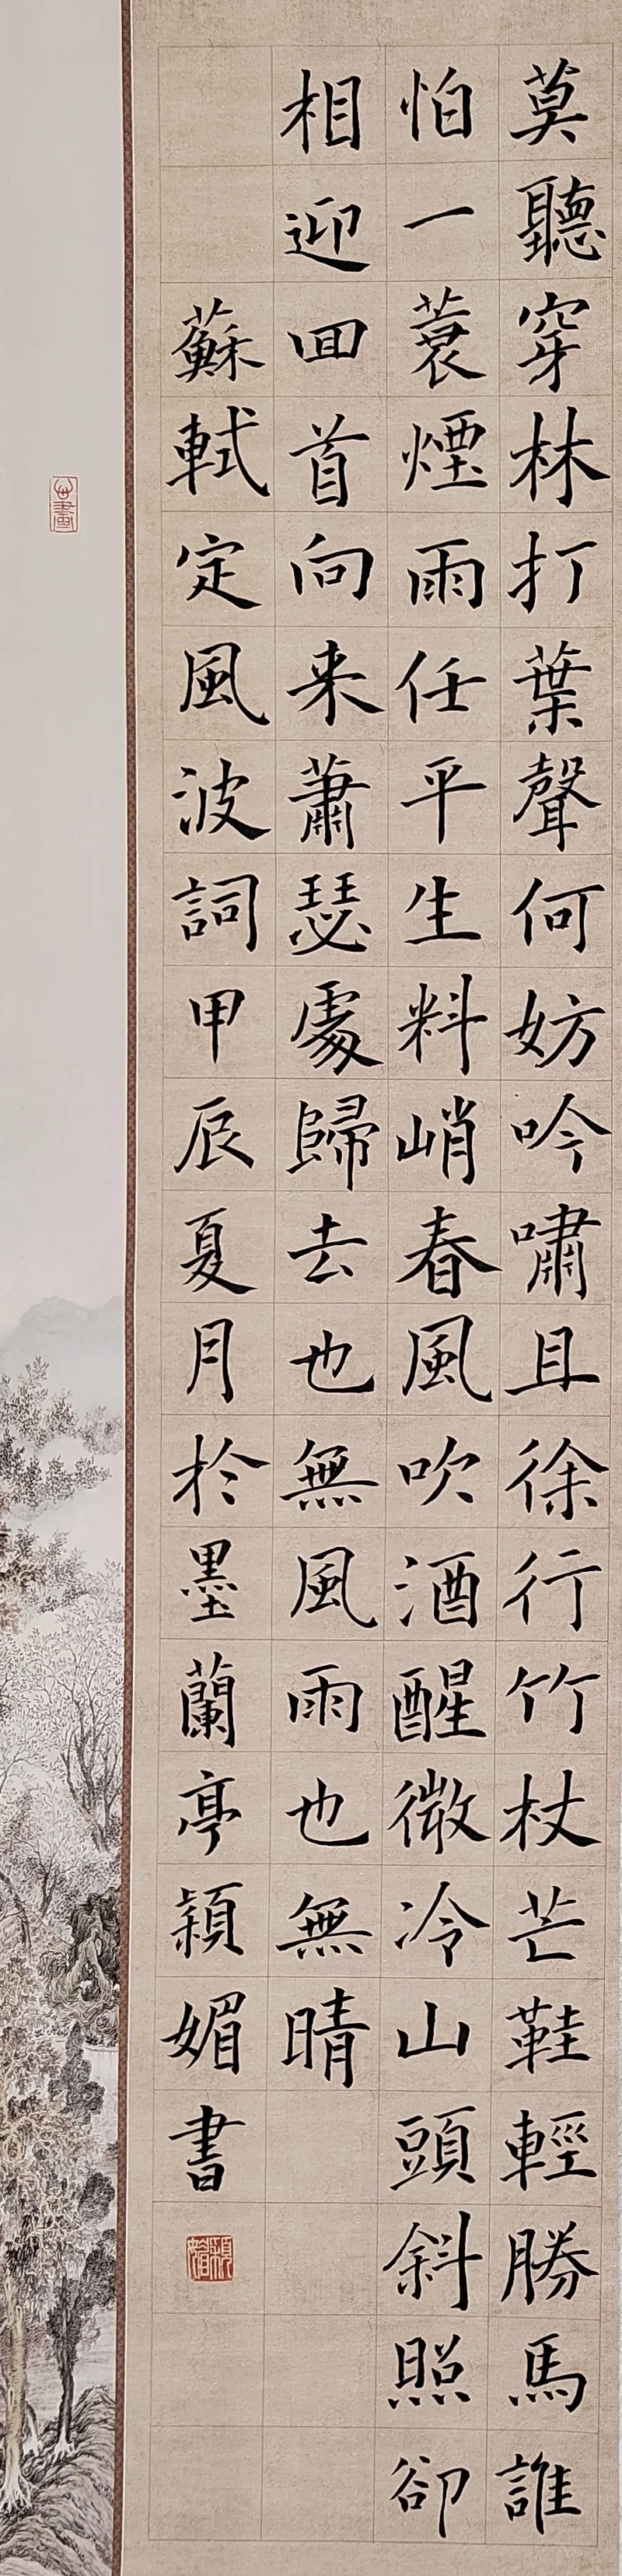 莫聽穿林打葉聲何妨吟嘯且徐行竹杖芒鞋輕勝馬誰
怕一蓑煙雨任平生料峭春風吹酒醒微冷山頭斜照卻
相迎回首向来蕭瑟處歸去也無風雨也無晴
蘇軾定風波詞甲辰夏月於墨蘭亭穎媚書
穎媚